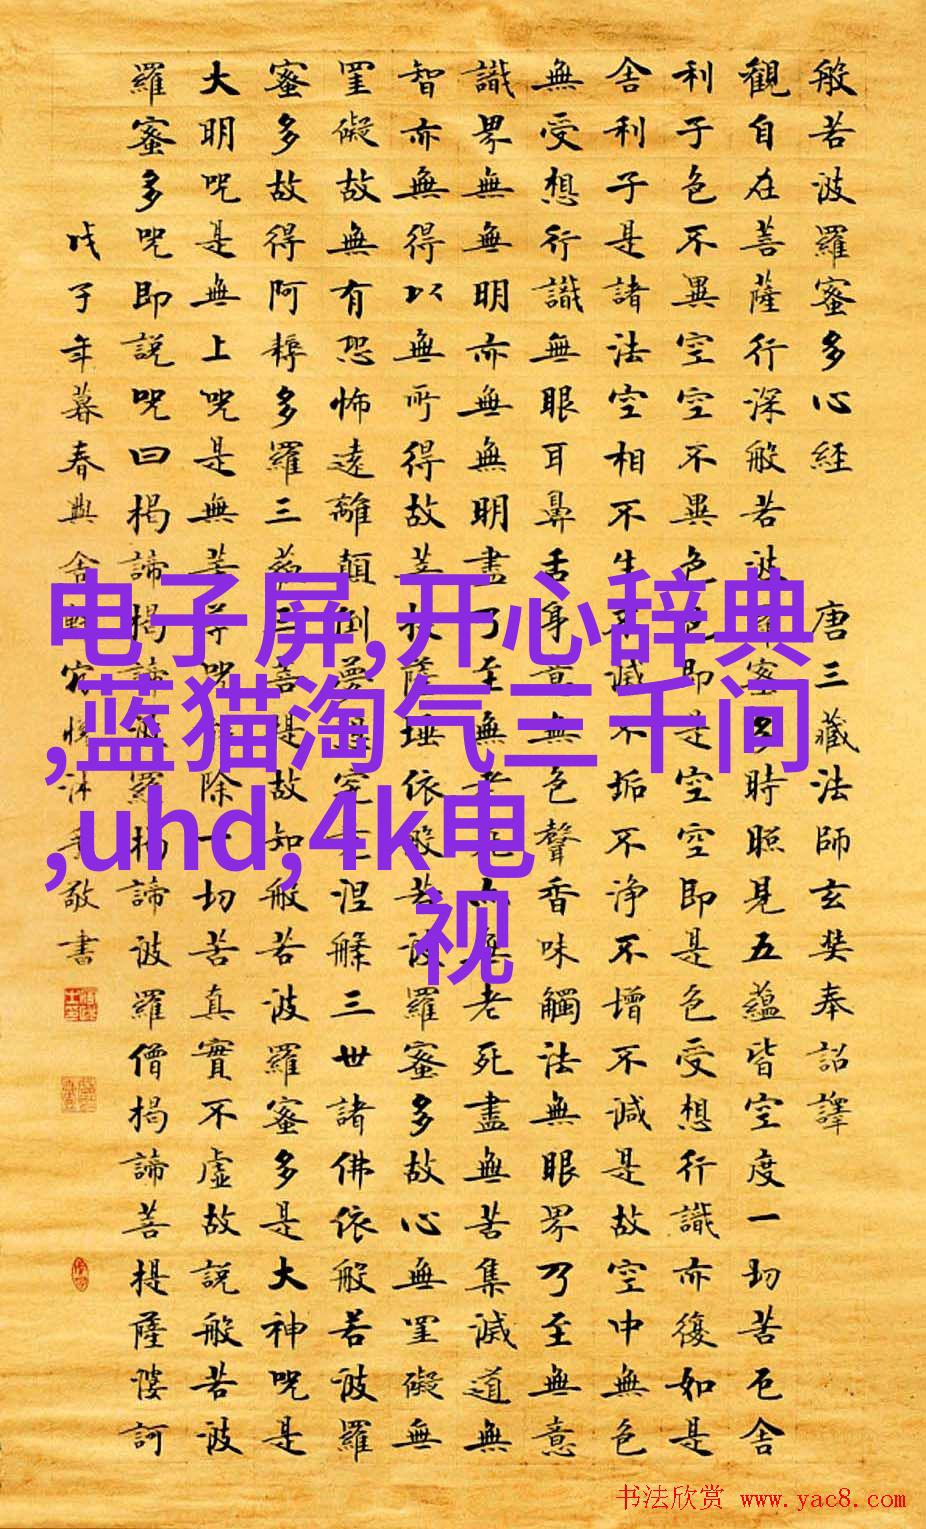 般若波羅蜜多心經 唐三藏法師玄奘奉詔譯
觀自在菩薩行深般若波羅蜜多時照見五蘊皆空度一切苦厄舍
利子色不異空空不異色色即是空空即是色受想行識亦復如是
舍利子是諸法空相不生不滅不垢不淨不增不減是故空中無色
無受想行識無眼耳鼻舌身意無色聲香味觸法無眼界乃至無意
識界無無明亦無無明盡乃至無老死亦無老死盡無苦集滅道無
智亦無得以無所得故菩提薩埵依般若波羅蜜多故心無罣礙無
罣礙故無有恐怖遠離顛倒夢想究竟涅槃三世諸佛依般若波羅
蜜多故得阿耨多羅三藐三菩提故知般若波羅蜜多是大神咒是
大明咒是無上咒是無等等咒能除一切苦真實不虛故說般若波
羅蜜多咒即說咒曰揭諦揭諦波羅揭諦波羅僧揭諦菩提薩婆訶
戊子年暮春興舍軒沐手敬書
电子屏,开心辞典
,蓝猫淘气三千问
,uhd,4k电
视
书法欣赏 www.yac8.com